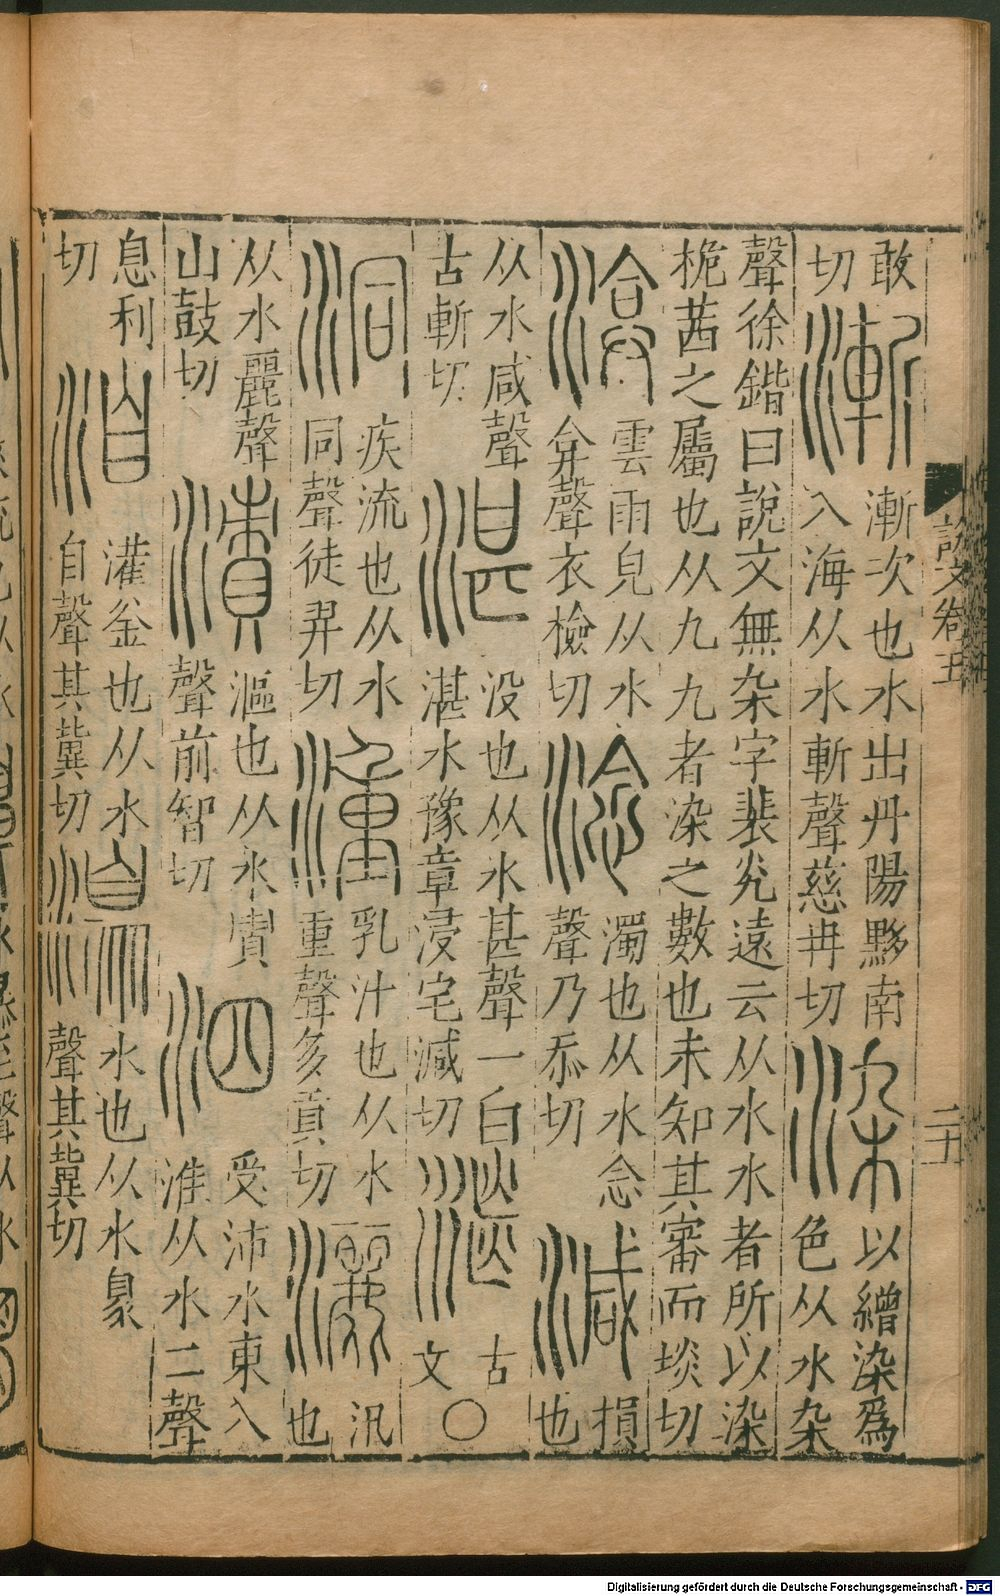 敢
切
漸
漸次也水出丹陽黟南
入海从水斬聲慈冉切
染
以繒染爲
色从水杂
聲徐鍇曰說文無杂字裴光遠云从水水者所以染
桅茜之屬也从九九者染之數也未知其審而埮切
渰
雲雨皃从水
弇聲衣檢切
淰
濁也从水念
聲乃忝切
減
損
也
从水咸聲
古斬切
湛
没也从水甚聲一白
湛水豫章浸宅減切
古
文
○
洞
疾流也从水
同聲徒弄切
湩
乳汁也从水
重聲多貢切
灑
汛
也
从水麗聲
山鼓切
漬
漚也从水責
聲前智切
泗
受沛水東入
淮从水二聲
息利
切
洎
灌釜也从水
自聲其冀切
水也从水臮
聲其冀切
說文卷五
二五